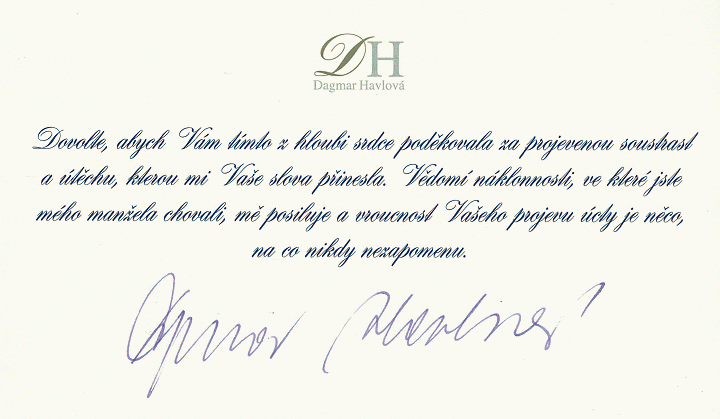 DH
Dagmar Havlová
Dovolte, abych Vám tímto z hloubi srdce poděkovala za projevenou soustrast
a útěchu, kterou mi Vaše slova přinesla. Vědomí náklonnosti, ve které jste
mého manžela chovali, mě posiluje a vroucnost Vašeho projevu úcty je něco,
na co nikdy nezapomenu.
Dagmar Havlová